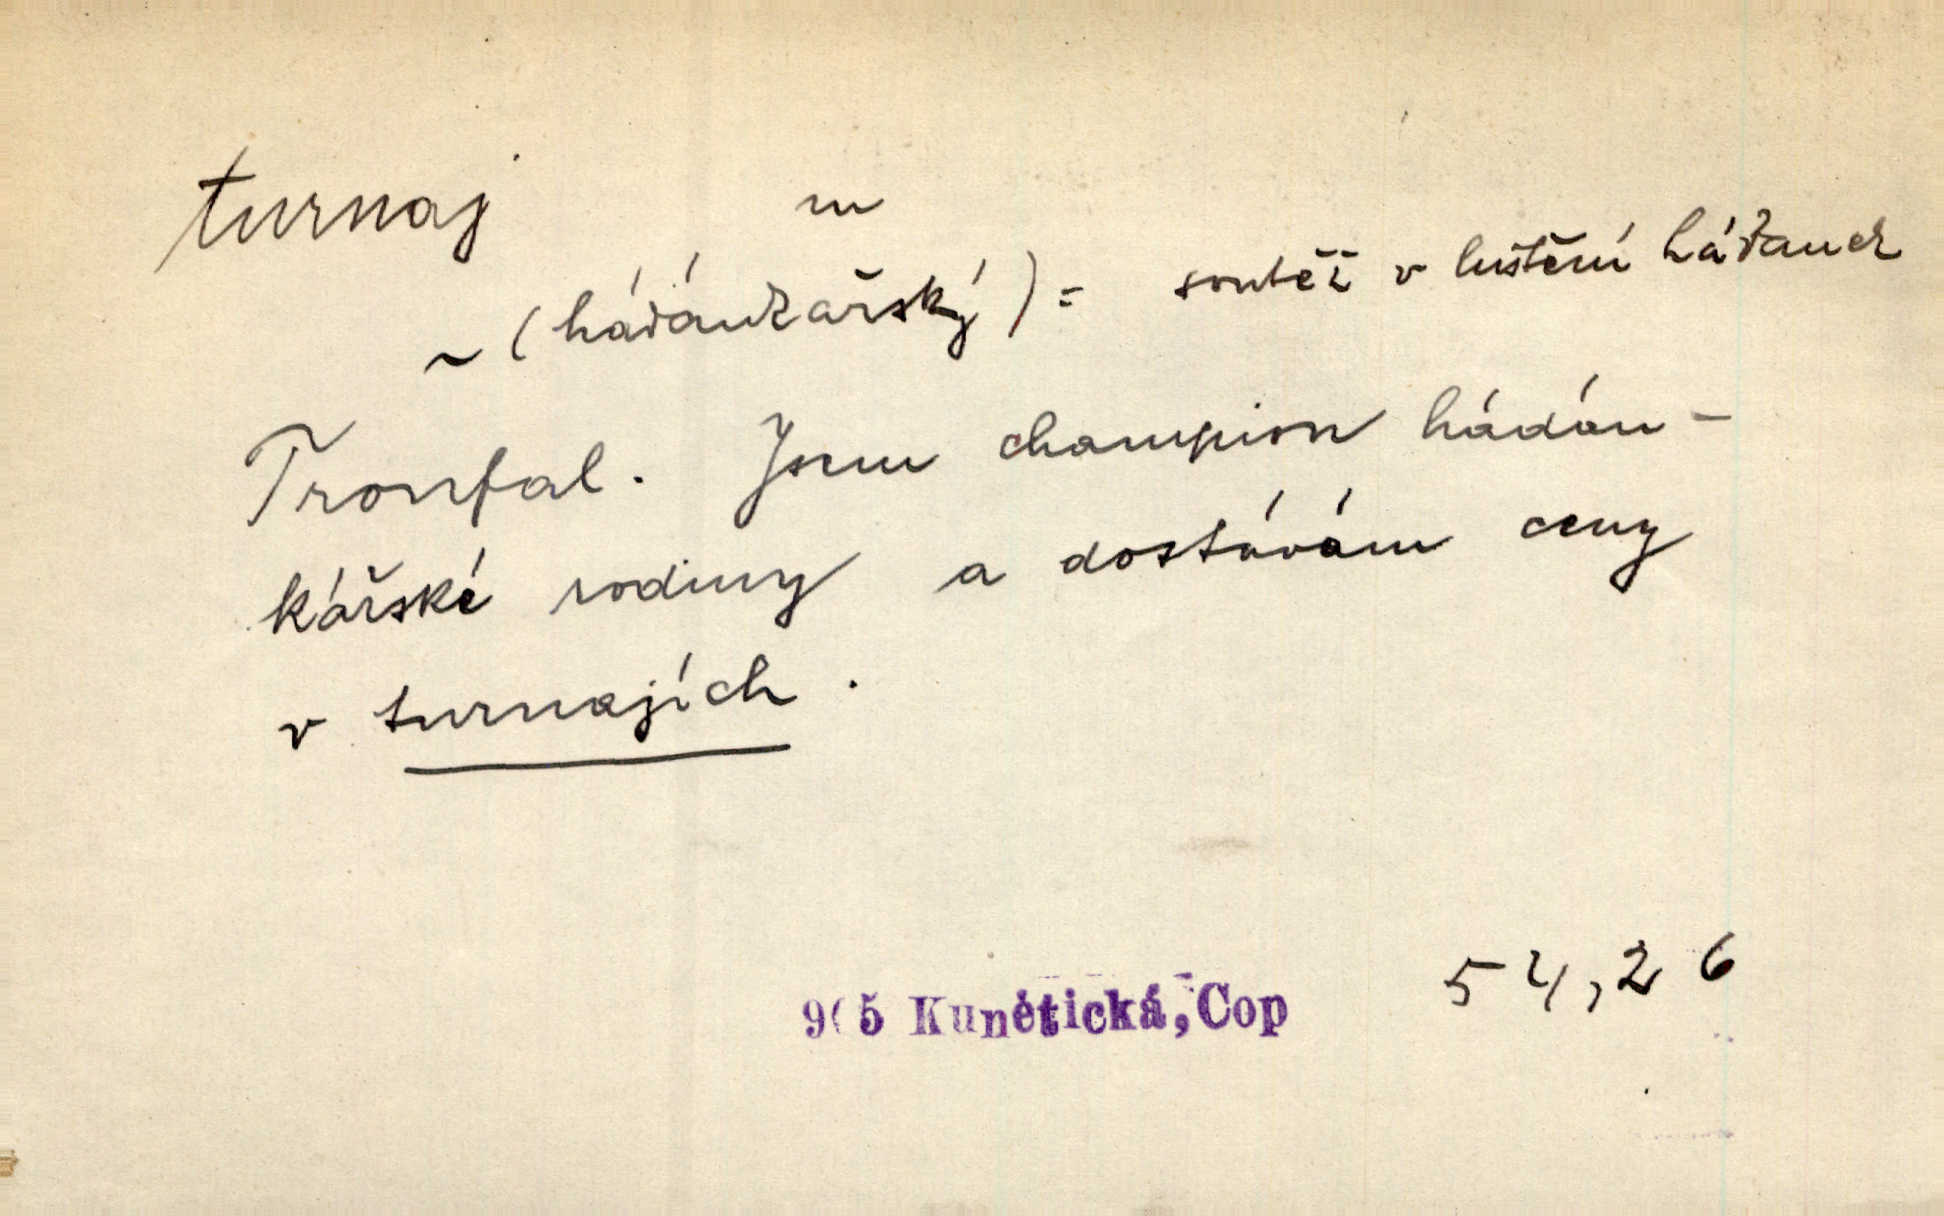 turnaj m
~ (hádankářský) = soutěž v luštění hádanek
Tronfal. Jsem champion hádán-
kářské rodiny a dostávám ceny
v turnajích.
905 Kunětická, Cop 54,26